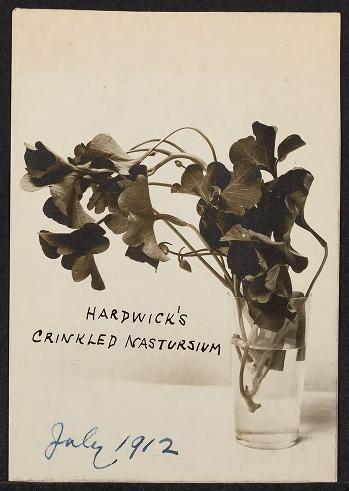 HARDWICK'S
CRINKLED NASTURSIUM
July 1912